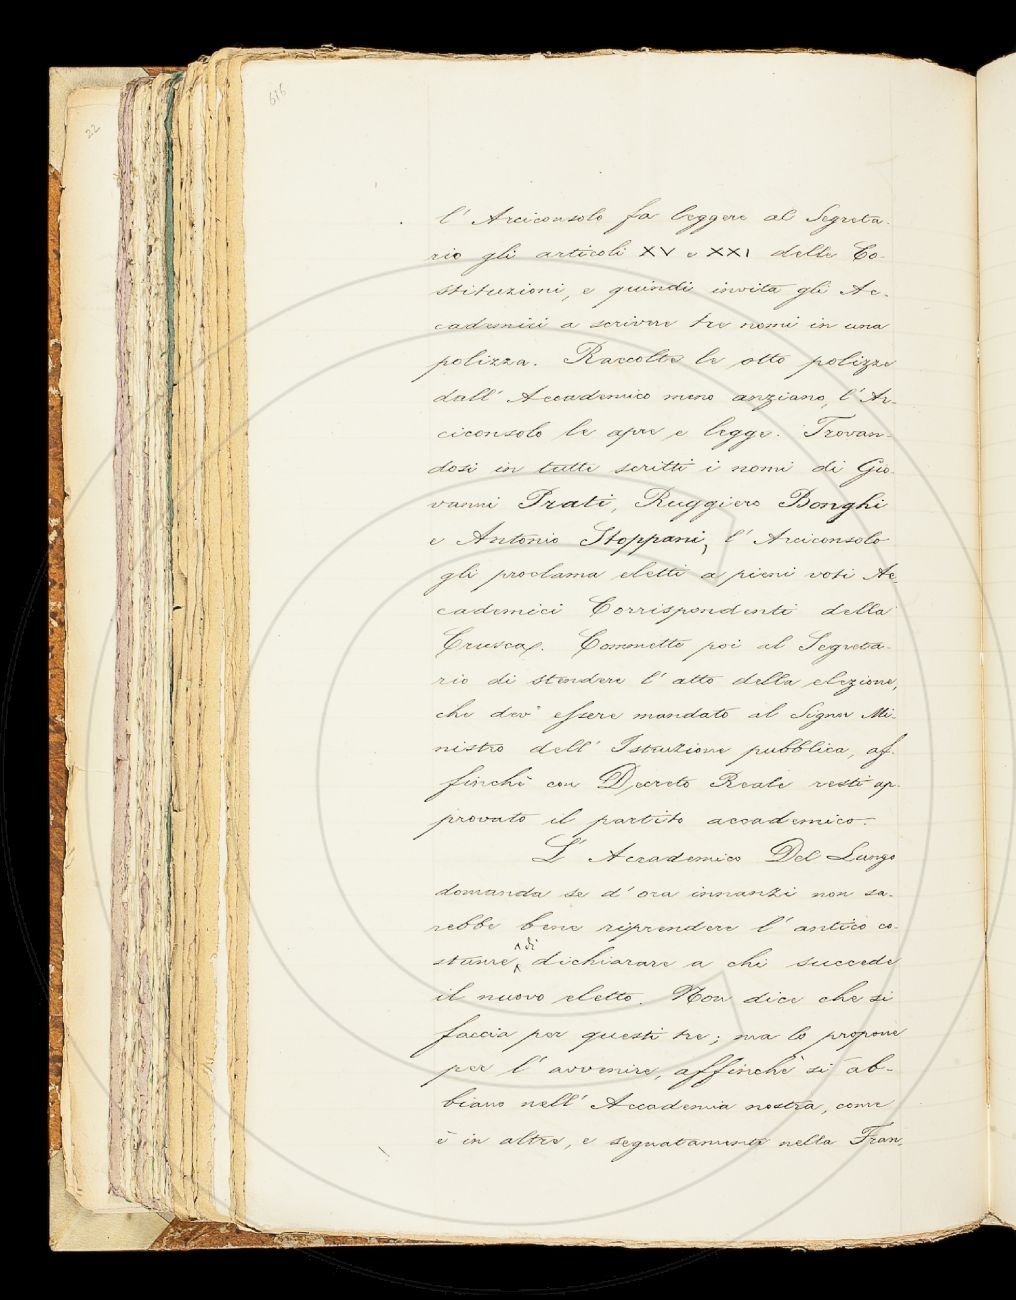 616
22
l' Arciconsolo fa leggere al Segreta-
rio gli articoli XV e XXI delle Co-
stituzioni, e quindi invita gli Ac-
cademici a scrivere tre nomi in una
polizza. Raccolte le otto polizze
dall' Accademico meno anziano, l' Ar-
ciconsolo le apre e legge. Trovan-
dosi in tutte scritti i nomi di Gio-
vanni Prati, Ruggiero Bonghi
e Antonio Stoppani, l' Arciconsolo
gli proclama eletti a pieni voti Ac-
cademici Corrispondenti della
Crusca. Commette poi al Segreta-
rio di stendere l' atto della elezione,
che dev' essere mandato al Signor Mi-
nistro dell' Istruzione pubblica, af-
finchè con Decreto Reale resti ap-
provato il partito accademico.
L' Accademico Del Lungo
domanda se d' ora innanzi non sa-
rebbe bene riprendere l' antico co-
stume di dichiarare a chi succede
il nuovo eletto. Non dice che si
faccia per questi tre; ma lo propone
per l' avvenire, affinchè si ab-
biano nell' Accademia nostra, come
è in altre, e segnatamente nella Fran-